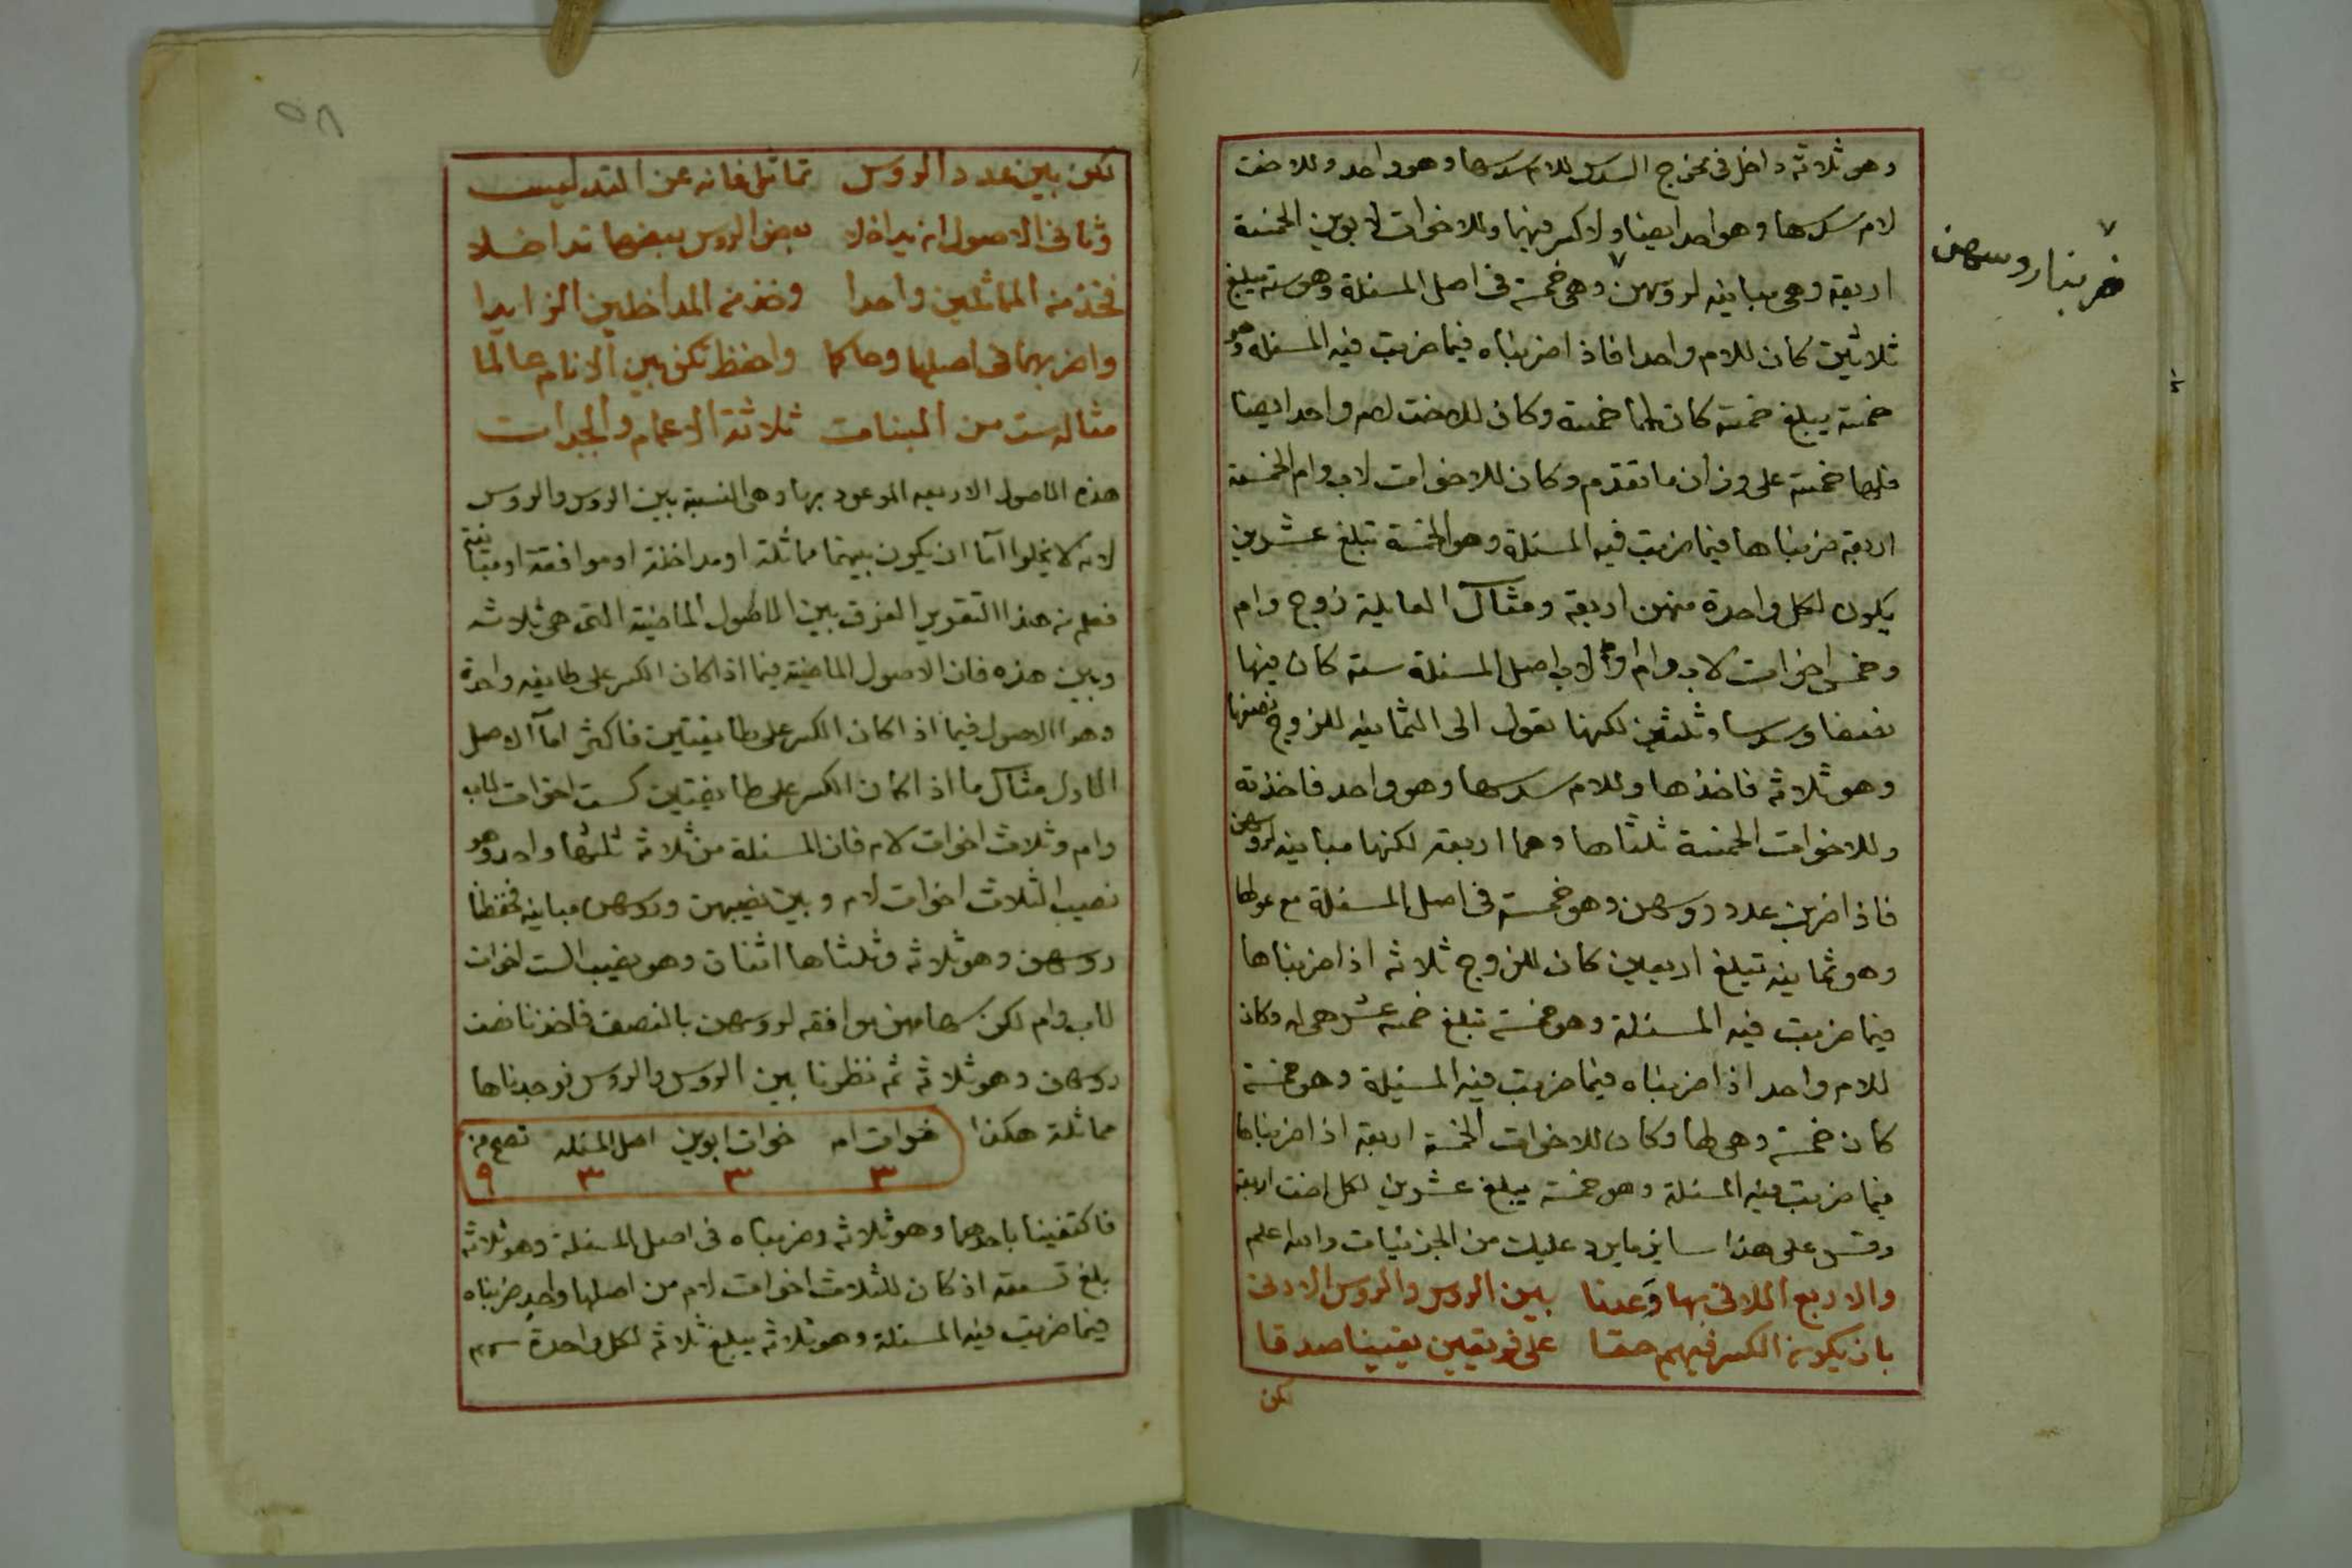 وهو ثلاثة داخل فى مخرج السدس للام سدسها وهو واحد وللاخت
لام سدسها وهو احد ايضا ولا كسر فيهما وللاخوات لابوين الخمسة
اربعة وهى مباينه لروسهن وهى خمسة فى اصل المسئلة وهو ستة تبلغ
ضربنا روسهن
ثلاثين كان للام واحدا فاذا ضربناه فيما ضربت فيه المسئله وهو
خمسة يبلغ خمسة كان لها خمسة وكان للاخت لام واحد ايضا
فلها خمسة على وزان ما تقدم وكان للاخوات لاب وام الخمسة
اربعة ضربناها فيما ضربت فيه المسئلة وهو الخمسة تبلغ عشرين
يكون لكل واحدة منهن اربعة ومثال العايلة زوج وام
وخمس اخوات لاب وام او لاب اصل المسئلة ستة كان فيها
نصفا وسدسا وثلثين لكنها تعول الى الثمانيه للزوج نصفها
وهو ثلاثه فاخذها وللام سدسها وهو واحد فاخذته
وللاخوات الخمسة ثلثاها وهما اربعة لكنها مباينه لروسهن
فاذا ضربت عدد روسهن وهو خمسة فى اصل المسئلة مع عولها
وهو ثمانيه تبلغ اربعين كان للزوج ثلاثه اذا ضربناها
فيما ضربت فيه المسئلة وهو خمسة تبلغ خمسه عشر هى له وكان
للام واحد اذا ضربناه فيما ضربت فيه المسئلة وهو خمسة
كان خمسة وهى لها وكان للاخوات الخمسة اربعة اذا ضربناها
فيما ضربت فيه المسئلة وهو خمسة يبلغ عشرين لكل اخت اربعة
وقس على هذا ساير ما يرد عليك من الجزئيات والله اعلم
والاربع اللاتى بها وَعدنا بين الروس والروس الادنى
بان يكون الكسر فيهم حقا على فريقين يقينا صدقا
لكن
٥٨
لكن بين عدد الروس تماثل فانه عن التدليس
وثانى الاصول ان يداخلا بعض الروس بعضها تداخلا
فخذ من المماثلين واحدا وخذ من المداخلين الزايدا
واضربهما فى اصلها وحاكما واحفظ تكن بين الانام عالما
مثاله ست من البنات ثلاثة الاعمام والجدات
هذه الاصول الاربعه الموعود بها وهى النسبة بين الروس والروس
لانه لا يخلوا اما ان يكون بينهما مماثلة او مداخلة او موافقة او مباينة
فعلم من هذا التقرير الفرق بين الاصول الماضية التى هى ثلاثه
وبين هذه فان الاصول الماضية فيما اذا كان الكسر على طايفه واحدة
وهوا الاصول فيما اذا كان الكسر على طايفتين فاكثر اما الاصل
الاول مثال ما اذا كان الكسر على طايفتين كست اخوات لاب
وام وثلاث اخوات لام فان المسئلة من ثلاثه ثلثها واحد وهو
نصيب الثلاث اخوات لام وبين نصيبهن وروسهن مباينه فحفظنا
روسهن وهو ثلاثه وثلثاها اثنان وهو نصيب الست اخوات
لاب وام لكن سهامهن موافقه لروسهن بالنصف فاخذنا نصف
روسهن وهو ثلاثه ثم نظرنا بين الروس والروس فوجدناها
مماثلة هكذا خوات ام خوات ابوين اصل المسئله تصح من
٣ ٣ ٣ ٩
فاكتفينا باحدهما وهو ثلاثه وضربناه فى اصل المسئلة وهو ثلاثه
بلغ تسعة اذ كان للثلاث اخوات لام من اصلها واحد ضربناه
فيما ضربت فيه المسئلة وهو ثلاثه يبلغ ثلاثه لكل واحدة